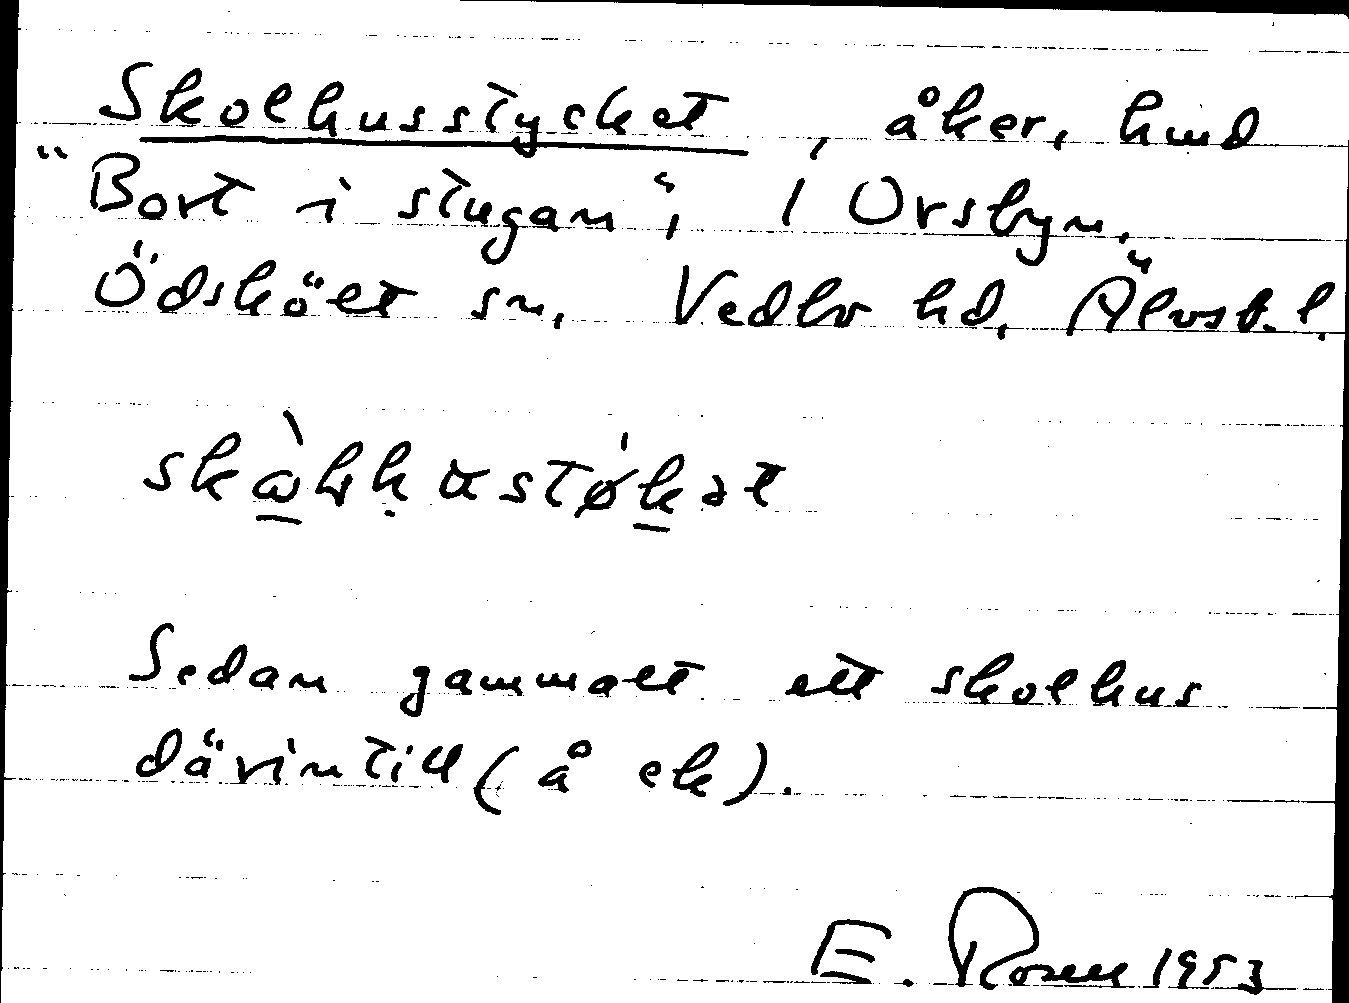 Skolhusstycket, åker, hmd
"Bort i stugan", 1 Orsbyn.
Ödskölt sn, Vedbo hd, Älvsb. l.
Sedan gammalt ett skolhus
därintill (å ek).
E. Rosell 1953